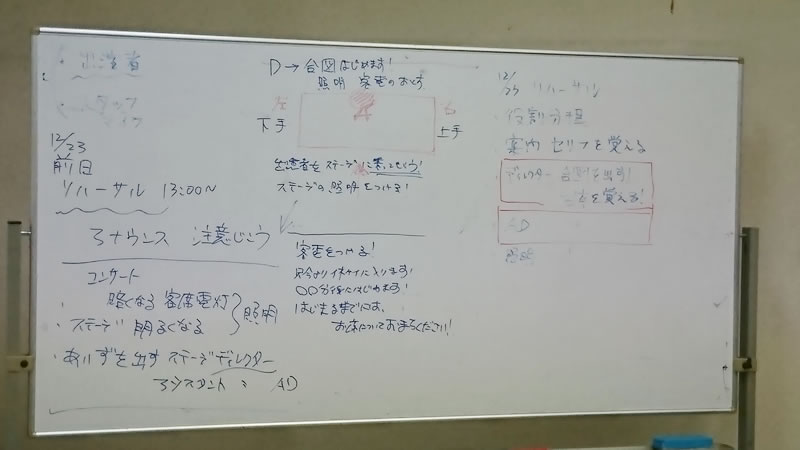 出演者
スタッフ
12/23
前日
リハーサル 13:00〜
アナウンス 注意じこう
コンサート
暗くなる 客席電灯
・ステージ 明るくなる
照明
・あいずを出す ステージディレクター
アシスタント = AD
D→合図はじめます!
照明 客電のおとす
左
右
下手
上手
出演者をステージに
ステージの照明をつける!
客電をつける!
〇〇分後にはじめます!
はじまるまでには、
おまちください!
12/23 リハーサル
・役割分担
案内 セリフを覚える
ディレクター 合図を出す!
を覚える!
AD
照明